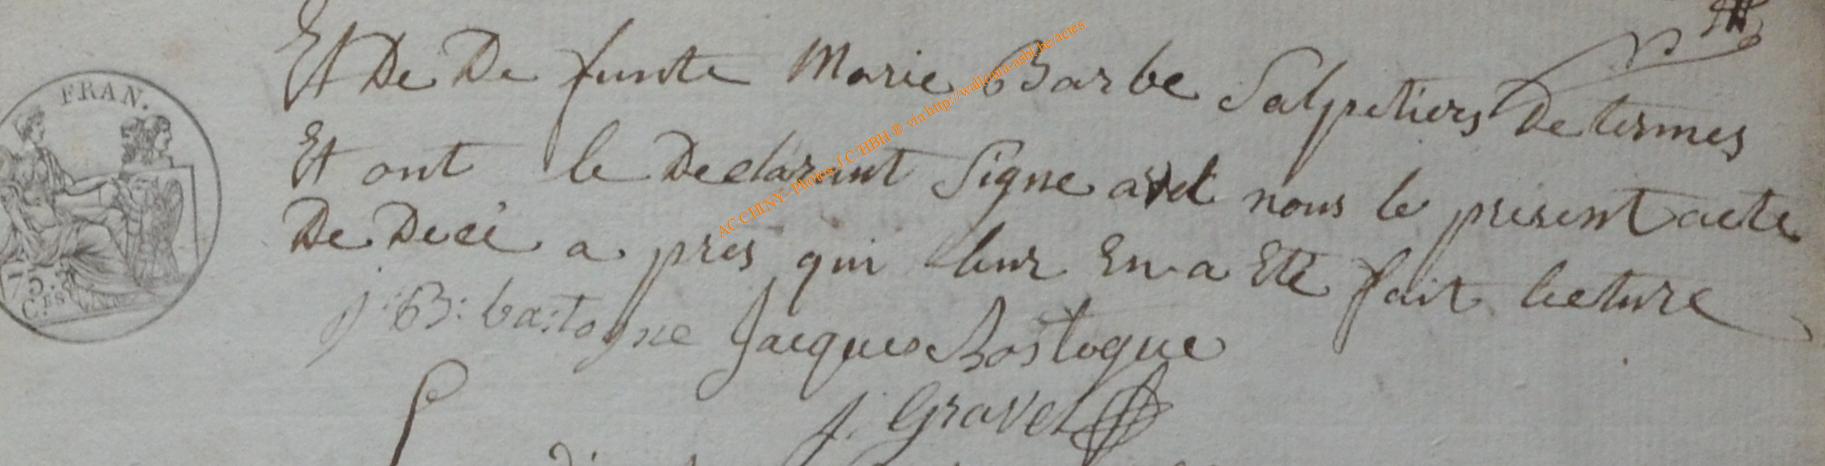 Et De De funte Marie Barbe Salpetiers De termes
Et ont le Declarant Signe avel nous le present acte
De Decé a pres qui leur En a Eté fait lecture
j: B: bastogne Jacques Bastogne
j. Gravet
FRAN.
75.
C.ES
AC CHINY - Photos J.C HBH ® via http://wallonia-asbl.be/actes